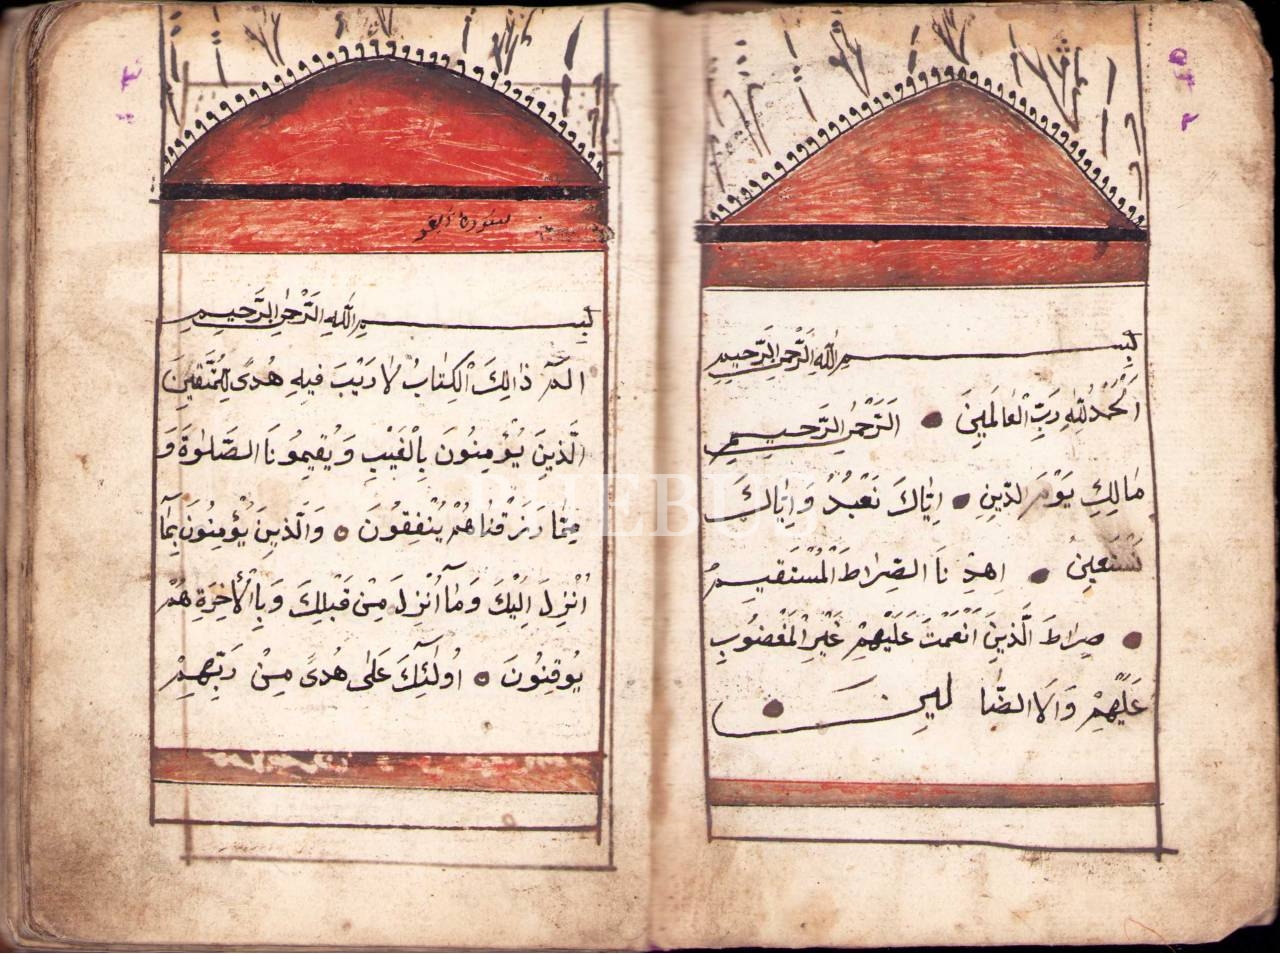 بِسْمِ اللّٰهِ الرَّحْمٰنِ الرَّحِيمِ
اَلْحَمْدُ لِلّٰهِ رَبِّ الْعَالَمِينَ ● اَلرَّحْمٰنِ الرَّحِيمِ
مَالِكِ يَوْمِ الدِّينِ ● اِيَّاكَ نَعْبُدُ وَاِيَّاكَ
نَسْتَعِينُ ● اِهْدِنَا الصِّرَاطَ الْمُسْتَقِيمَ
● صِرَاطَ الَّذِينَ اَنْعَمْتَ عَلَيْهِمْ غَيْرِ الْمَغْضُوبِ
عَلَيْهِمْ وَلَا الضَّالِّينَ ●
سورة البقر
بِسْمِ اللّٰهِ الرَّحْمٰنِ الرَّحِيمِ
الٓمٓ ذَالِكَ الْكِتَابُ لَا رَيْبَ فِيهِ هُدًى لِلْمُتَّقِينَ
الَّذِينَ يُؤْمِنُونَ بِالْغَيْبِ وَيُقِيمُونَ الصَّلٰوةَ وَ
مِمَّا رَزَقْنَاهُمْ يُنْفِقُونَ ● وَالَّذِينَ يُؤْمِنُونَ بِمَٓا
اُنْزِلَ اِلَيْكَ وَمَٓا اُنْزِلَ مِنْ قَبْلِكَ وَبِالْاٰخِرَةِ هُمْ
يُوقِنُونَ ● اُولٰٓئِكَ عَلٰى هُدًى مِنْ رَبِّهِمْ
PHEBUS